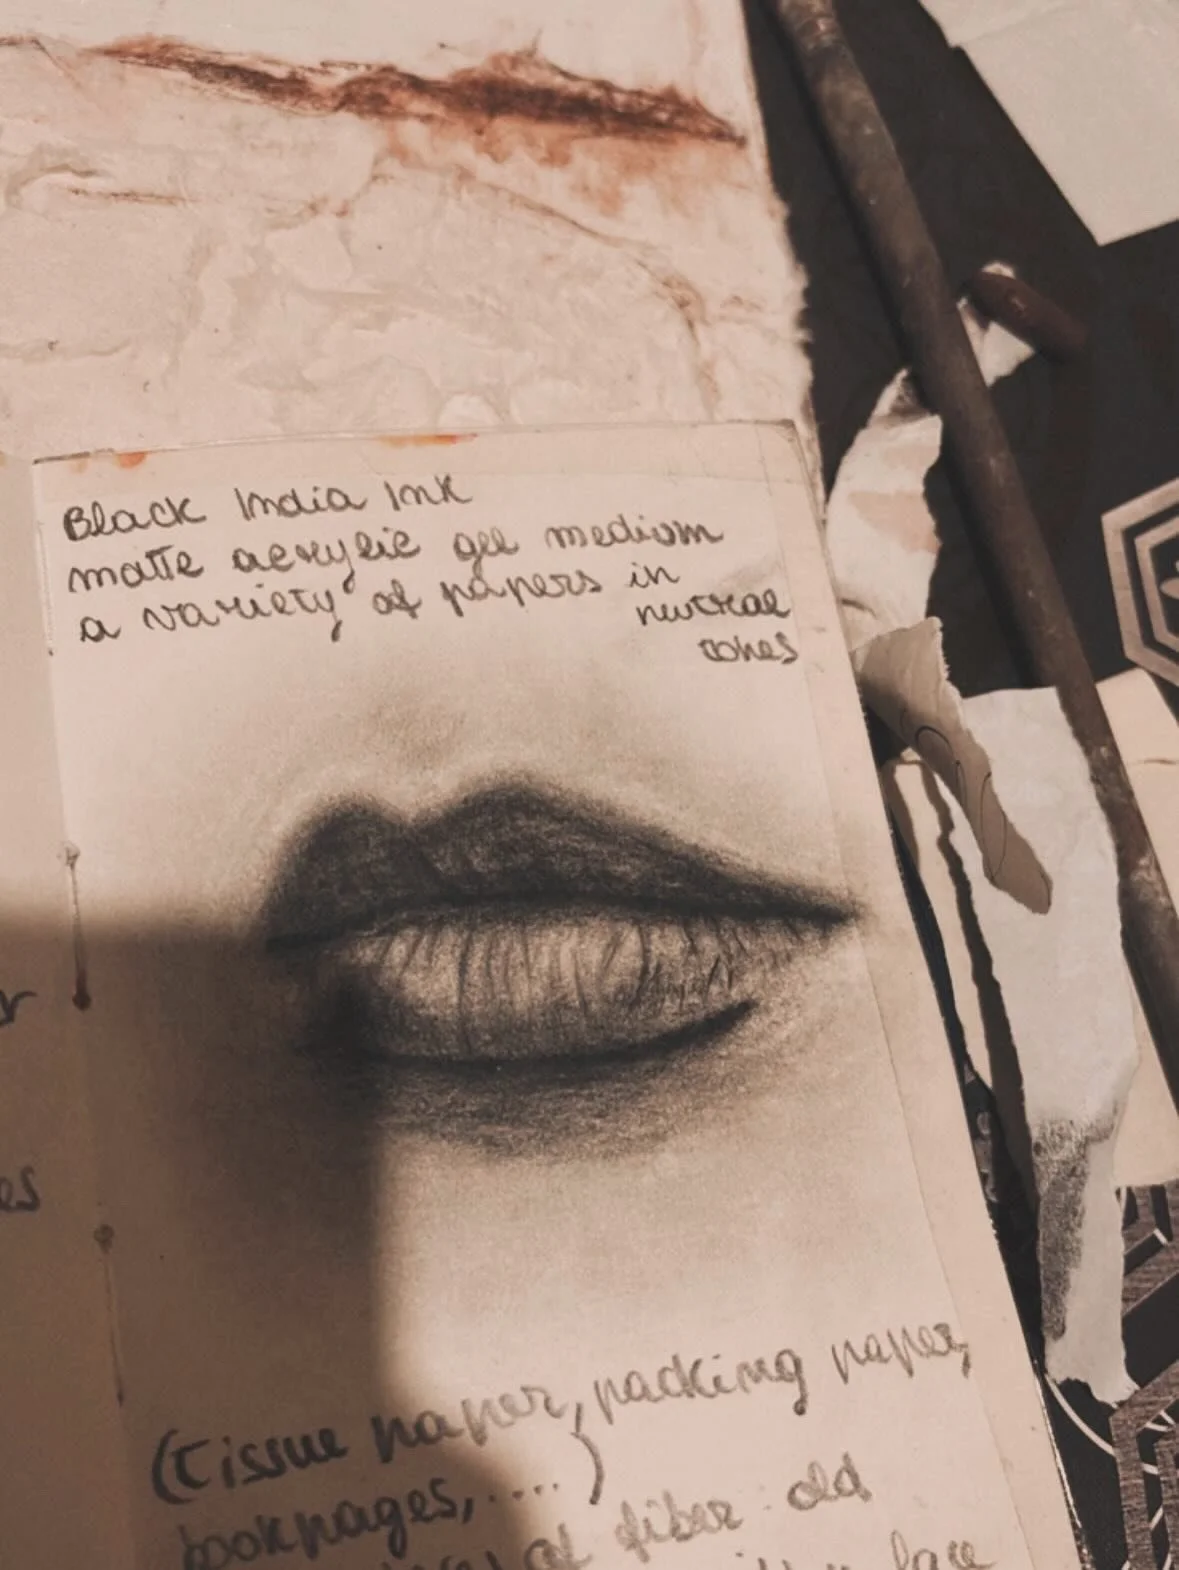 Black India Ink
matte acrylic gel medium
a variety of papers in
neutral
tones
r
es
(Tissue paper, packing paper,
bookpages, .... )
of fiber: old
lace